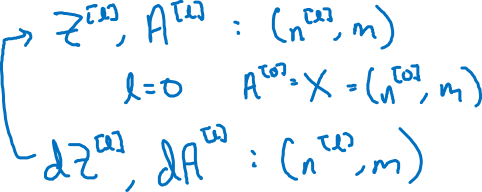 Z^[l], A^[l] : (n^[l], m)
l=0 A^[0] = X = (n^[0], m)
dZ^[l], dA^[l] : (n^[l], m)